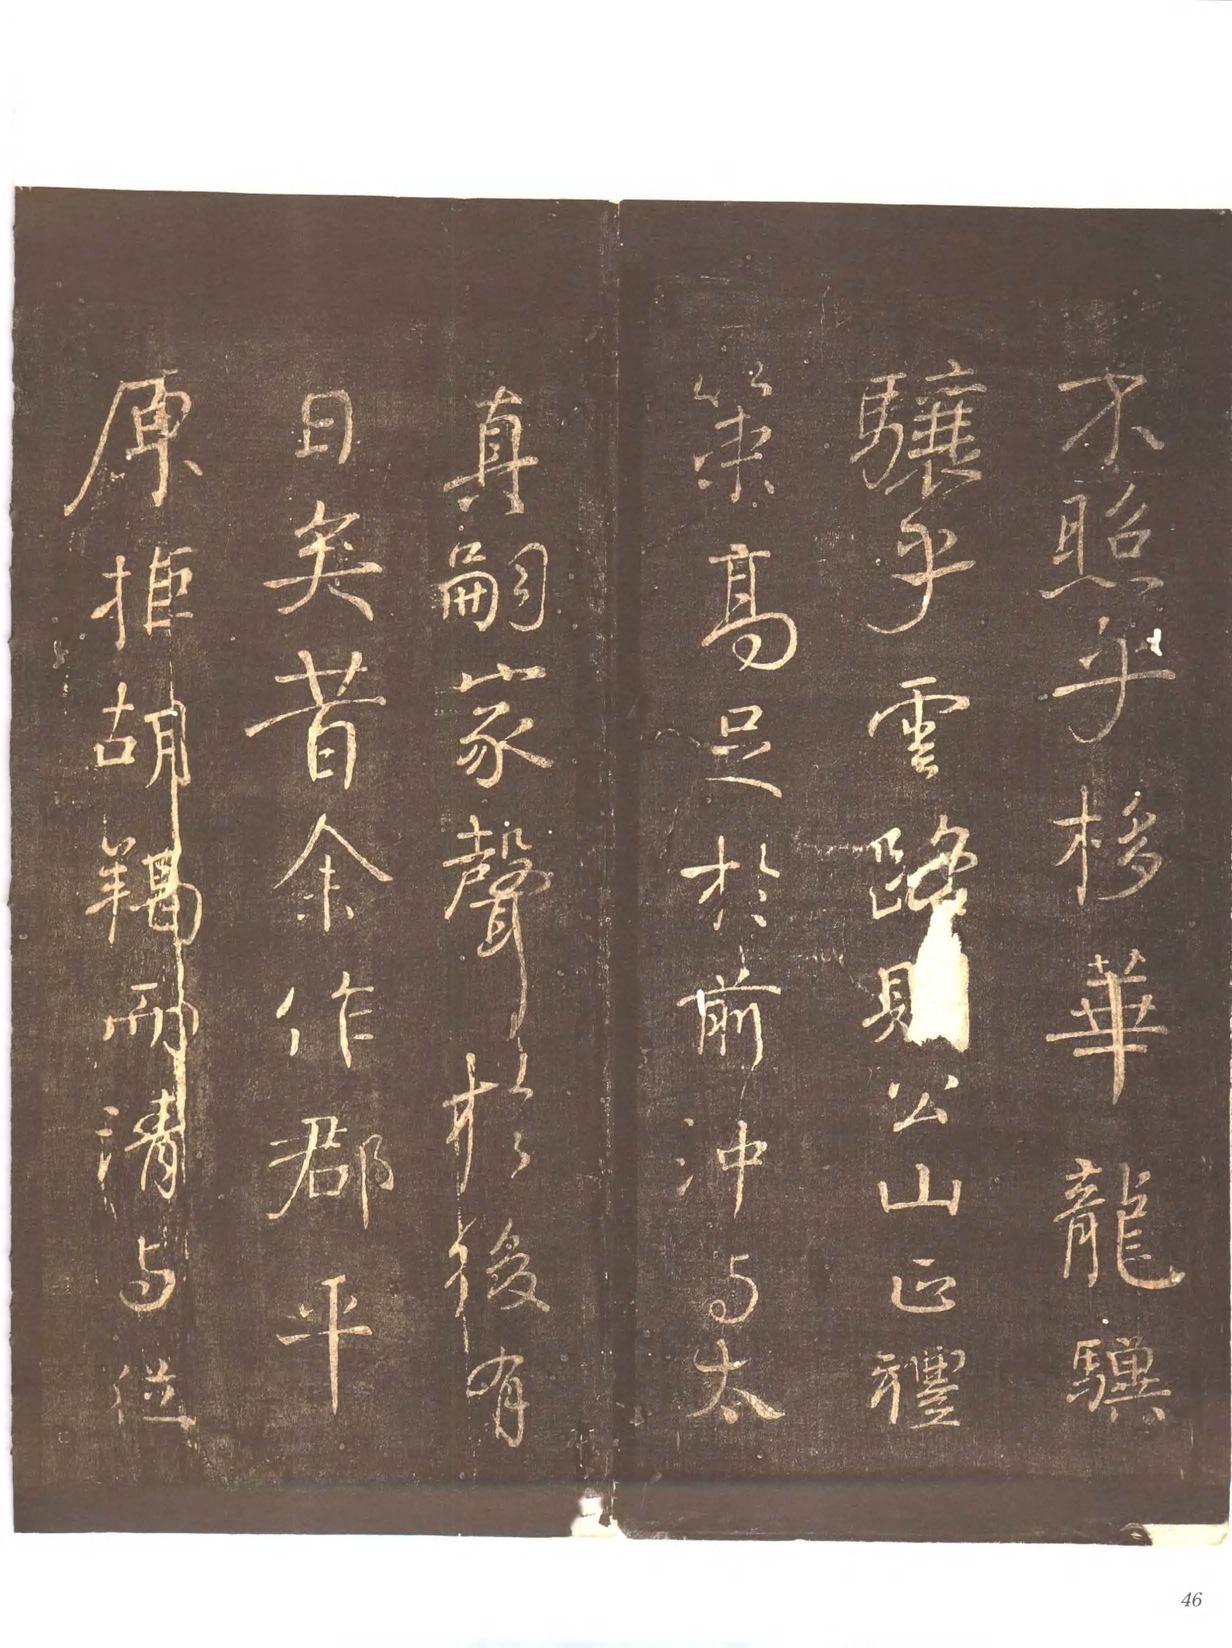 不照乎栘華龍驥
驤乎雲路則公山正禮
策高足於前沖与太
真嗣家聲於後有
日矣昔余作郡平
原拒胡羯而清与從
46